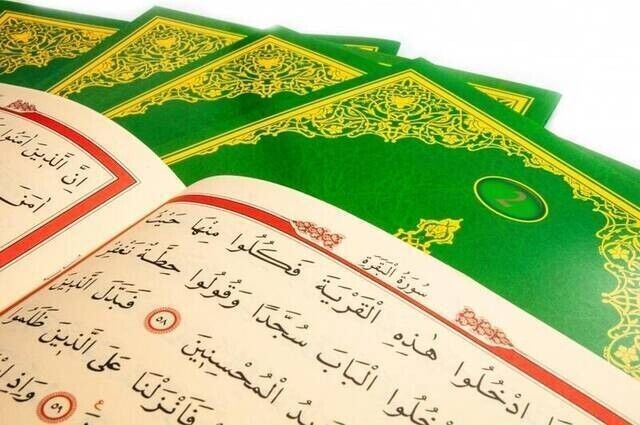 2
سُورَةُ الْبَقَرَةِ
ادْخُلُوا هٰذِهِ الْقَرْيَةَ فَكُلُوا مِنْهَا
الْبَابَ سُجَّدًا وَقُولُوا حِطَّةٌ
الْمُحْسِنِينَ ٥٨ فَبَدَّلَ الَّذِينَ
فَاَنْزَلْنَا عَلَى الَّذِينَ ظَلَمُوا
٥٩ وَاِذِ
اِنَّ الَّذِينَ اٰمَنُوا
اٰمَنَ